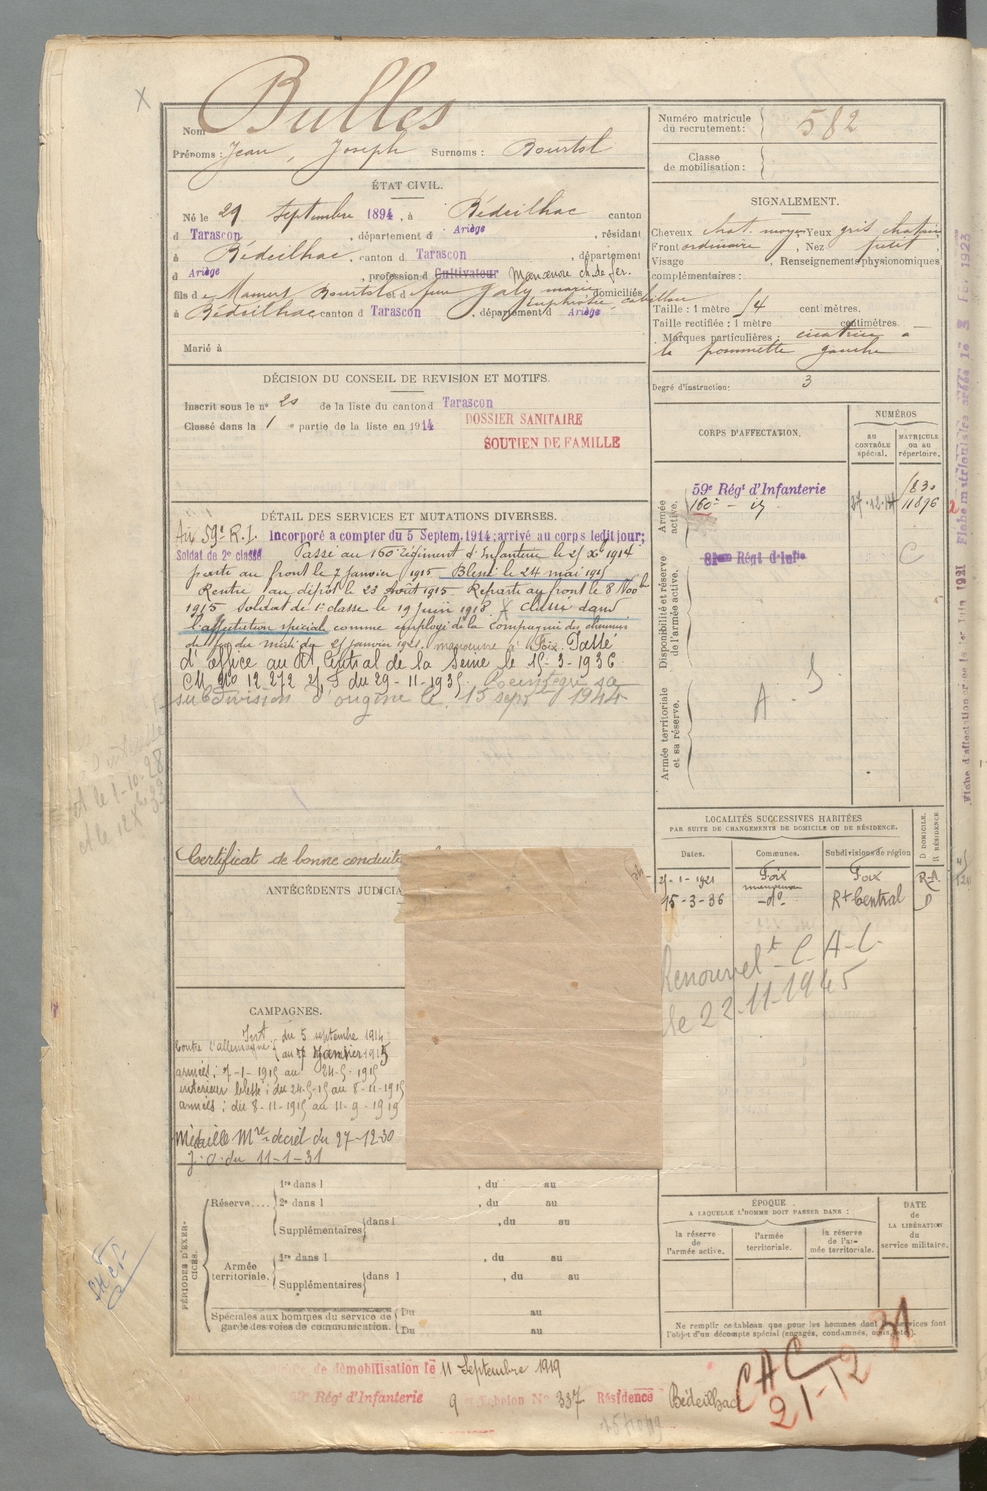 Bulles
Nom
Prénoms : Jean, Joseph Surnoms : Bourtol
Numéro matricule du recrutement : 582
Classe de mobilisation :
ÉTAT CIVIL.
Né le 29 septembre 1894, à Bédeilhac canton
d Tarascon, département d Ariège, résidant
à Bédeilhac, canton d Tarascon, département
d Ariège, profession d Cultivateur Manœuvre ch. de fer.
fils de Mamert Bourtol et d feu Galy marie Euphrosie domiciliés
à Bédeilhac canton d Tarascon, département d Ariège
Marié à
SIGNALEMENT.
Cheveux chat. moyen Yeux gris chatain
Front ordinaire, Nez petit
Visage, Renseignements physionomiques
complémentaires :
Taille : 1 mètre 54 centimètres.
Taille rectifiée : 1 mètre centimètres.
Marques particulières : cicatrice à
la pommette gauche
Degré d'instruction : 3
DÉCISION DU CONSEIL DE REVISION ET MOTIFS.
Inscrit sous le n° 20 de la liste du canton d Tarascon
Classé dans la 1e partie de la liste en 1914
DOSSIER SANITAIRE
SOUTIEN DE FAMILLE
CORPS D'AFFECTATION.
NUMÉROS
AU CONTRÔLE SPÉCIAL.
MATRICULE OU AU RÉPERTOIRE.
Armée active.
59e Régt d'Infanterie
160e - id
27-12-14
11896
Disponibilité et réserve de l'armée active.
81me Régt d'Infie
C
Armée territoriale et sa réserve.
A. S
DÉTAIL DES SERVICES ET MUTATIONS DIVERSES.
Au 59e R.I. Incorporé à compter du 5 Septem. 1914; arrivé au corps ledit jour;
Soldat de 2e classe Passé au 160e régiment d'Infanterie le 27 Xbre 1914
parti au front le 7 Janvier 1915 Blessé le 24 mai 1915
Rentré au dépôt le 23 août 1915. Reparti au front le 8 Novbre
1915 Soldat de 1e classe le 19 juin 1918. Classé dans
l'affectation spéciale comme employé de la Compagnie des chemins
de fer du midi du 25 janvier 1921, manœuvre à Foix. Passé
d'office au Rt Central de la Seine le 15-3-1936
CM No 12.272 2/5 du 29-11-1935. Réintégré sa
subdivision d'origine le 15 sept 1944
Certificat de bonne conduite
ANTÉCÉDENTS JUDICIA
LOCALITÉS SUCCESSIVES HABITÉES
PAR SUITE DE CHANGEMENTS DE DOMICILE OU DE RÉSIDENCE.
Dates. Communes. Subdivisions de région D DOMICILE. R RÉSIDENCE
25-1-1921 Foix manœuvre Foix R-A
15-3-36 -do- Rt Central D
Renouvelt C.A.C.
le 22.11.1945
CAMPAGNES.
Contre l'allemagne : Intr du 5 septembre 1914
au 6 Janvier 1915
armées : 7-1-1915 au 24-5-1915
intérieur blessé : du 24-5-15 au 8-11-1915
armées : du 8-11-1915 au 11-9-1919
Médaille Mre décret du 27-12-30
J.O. du 11-1-31
PÉRIODES D'EXERCICES.
Réserve.... 1re dans l, du au
2e dans l, du au
Supplémentaires dans l, du au
Armée territoriale. 1re dans l, du au
Supplémentaires dans l, du au
Spéciales aux hommes du service de garde des voies de communication. Du au
Du au
ÉPOQUE
A LAQUELLE L'HOMME DOIT PASSER DANS :
la réserve de l'armée active.
l'armée territoriale.
la réserve de l'armée territoriale.
DATE de LA LIBÉRATION du service militaire.
Ne remplir ce tableau que pour les hommes dont les services font
l'objet d'un décompte spécial (engagés, condamnés, omis, etc.).
de démobilisation le 11 Septembre 1919
Régt d'Infanterie 9 échelon No 337 Résidence Bédeilhac
CAC
21-12 31